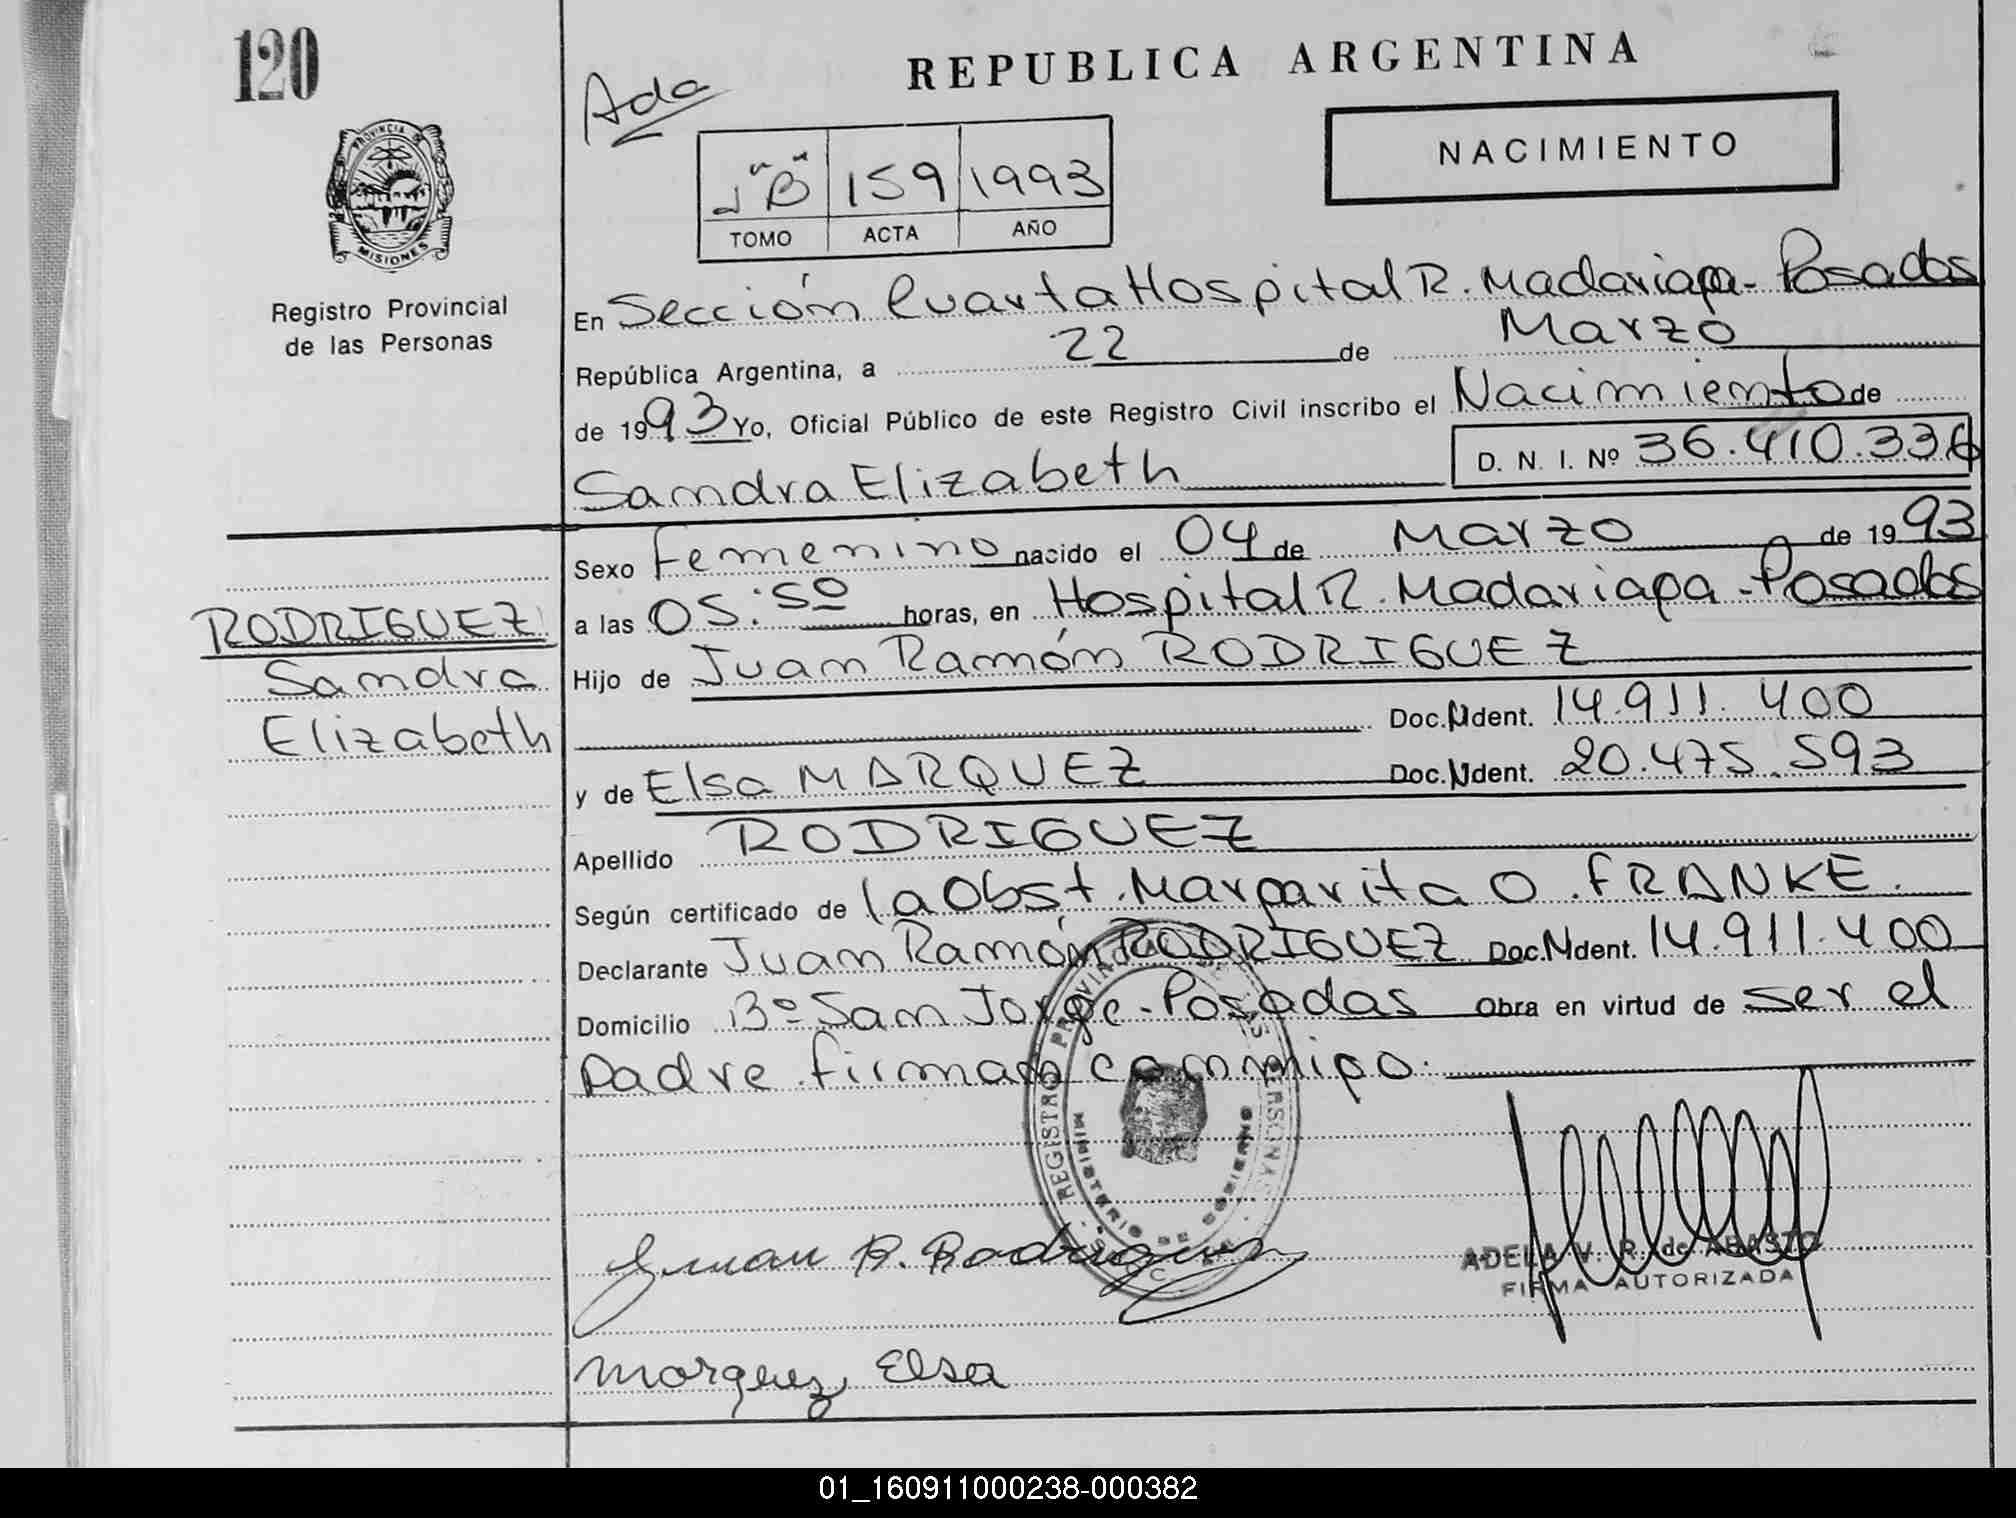 120
REPUBLICA ARGENTINA
Ada
NACIMIENTO
"B" 159 1993
TOMO ACTA AÑO
PROVINCIA DE MISIONES
Registro Provincial
de las Personas
En Sección Cuarta Hospital R. Madariaga - Posadas
República Argentina, a 22 de Marzo
de 1993 Yo, Oficial Público de este Registro Civil inscribo el Nacimiento de
D. N. I. Nº 36.410.336
Sandra Elizabeth
Sexo femenino nacido el 04 de Marzo de 1993
a las 05:50 horas, en Hospital R. Madariaga - Posadas
RODRIGUEZ
Sandra
Elizabeth
Hijo de Juan Ramón RODRIGUEZ
Doc. Ident. 14.911.400
y de Elsa MARQUEZ Doc. Ident. 20.475.593
Apellido RODRIGUEZ
Según certificado de la Obst. Margarita O. FRANKE.
Declarante Juan Ramón RODRIGUEZ Doc. Ident. 14.911.400
Domicilio Bº San Jorge - Posadas Obra en virtud de ser el
padre firmado conmigo.
REGISTRO PROVINCIAL DE LAS PERSONAS
MINISTERIO DE GOBIERNO
Juan R. Rodriguez
ADELA V. R. de ABASTO
FIRMA AUTORIZADA
Marquez, Elsa
01_160911000238-000382